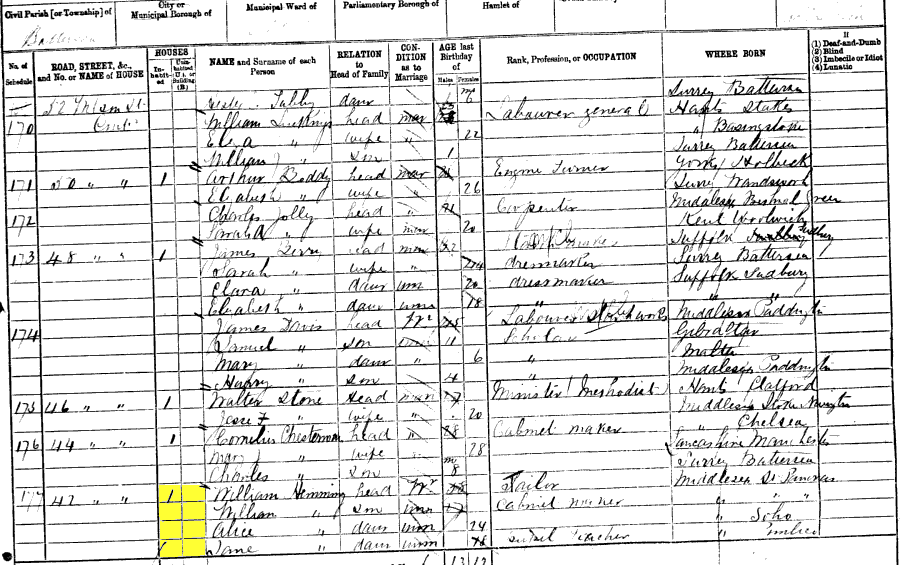 Civil Parish [or Township] of
City or
Municipal Borough of
Municipal Ward of
Parliamentary Borough of
Hamlet of
Battersea
No. of Schedule
ROAD, STREET, &c., and No. or NAME of HOUSE
HOUSES
Inhabited
Uninhabited (U.) or Building (B.)
NAME and Surname of each Person
RELATION to Head of Family
CONDITION as to Marriage
AGE last Birthday of
Males
Females
Rank, Profession, or OCCUPATION
WHERE BORN
If
(1) Deaf-and-Dumb
(2) Blind
(3) Imbecile or Idiot
(4) Lunatic
52 St. Tubby daur mo 6 Surrey Battersea
170 Cont William head mar Labourer general Hants
Eliza " wife " 22 " Basingstoke
William " son 1 Surrey Battersea
171 50 " " 1 Arthur Boddy head mar Engine Turner York Holbeck
Elizabeth " wife " 26 Surrey Wandsworth
172 Charles Jolly head " 21 Carpenter Middlesex Bethnal Green
Sarah A " wife mar 20 Kent Woolwich
173 48 " " 1 James head mar 52 Suffolk Sudbury
Sarah " wife " dressmaker Surrey Battersea
Clara " daur unm 20 dressmaker Suffolk Sudbury
Elizabeth " daur unm 18 " " "
174 James Davis head Wr Labourer works Middlesex Paddington
Samuel " son unm 11 Scholar Gibraltar
Mary " daur 6 " Malta
Harry " son 4 " Middlesex Paddington
175 46 " " 1 Walter Stone Head mar Minister (Methodist) Hants Clatford
" wife " 20 Middlesex Stoke Newington
176 44 " " 1 Cornelius Chesterman head " 28 Cabinet maker " Chelsea
Mary " wife 28 Lancashire Manchester
Charles " son mo 8 Surrey Battersea
177 42 " " 1 William Hemming head Wr Tailor Middlesex St Pancras
William " son unm 17 Cabinet maker " "
Alice " daur unm 24 " Soho
Jane " daur unm 18 Teacher " Pimlico